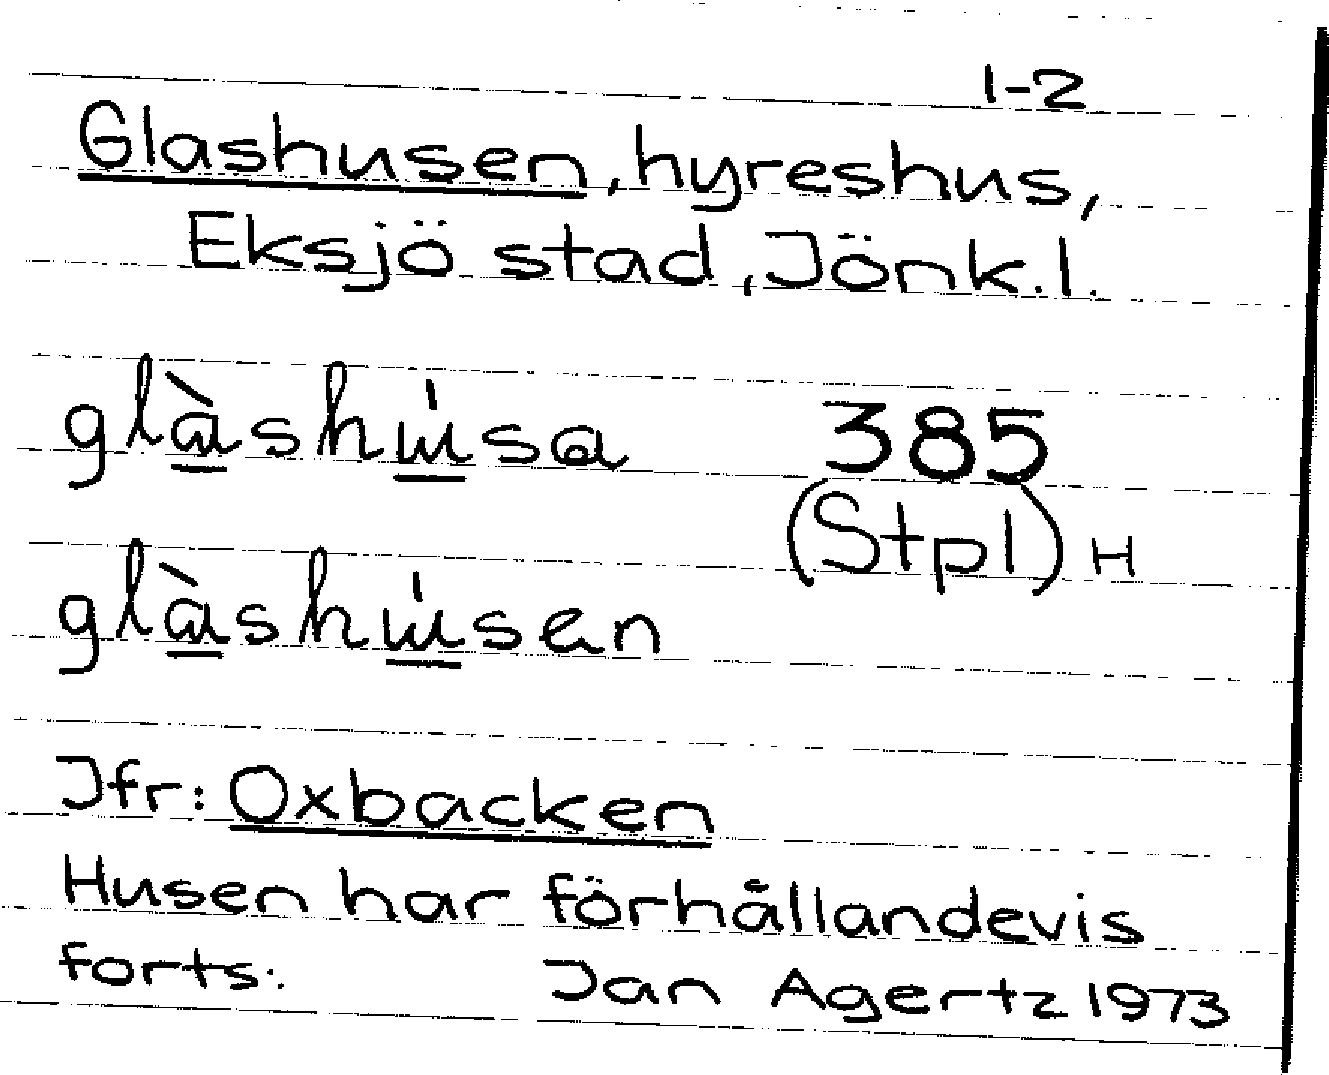 1-2
Glashusen, hyreshus,
Eksjö stad, Jönk.l.
glàshu̍sa 385
(Stpl) H
glàshu̍sen
Jfr: Oxbacken
Husen har förhållandevis
forts. Jan Agertz 1973